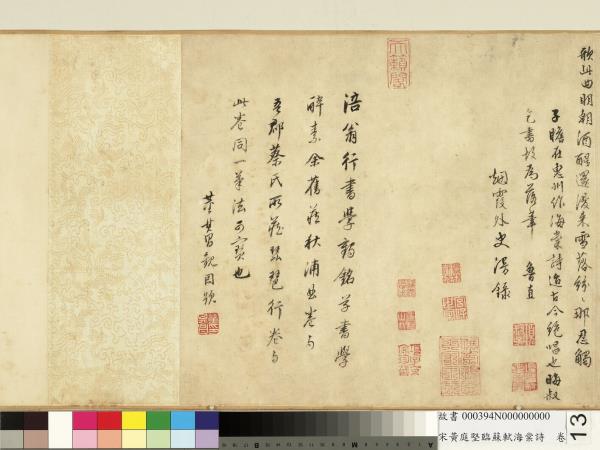 歌此曲明朝酒醒還復来雪落紛〻那忍觸
子瞻在惠州作海棠詩迨古今絕唱也晦叔
乞書故為落筆 魯直
烟霞外史漫錄
天籟閣
涪翁行書學鶴銘草書學
醉素余舊藏秋浦卷与
吾郡蔡氏所藏琵琶行卷与
此卷同一筆法可寶也
董其昌觀因題
故書 000394N000000000
宋黃庭堅臨蘇軾海棠詩 卷
13